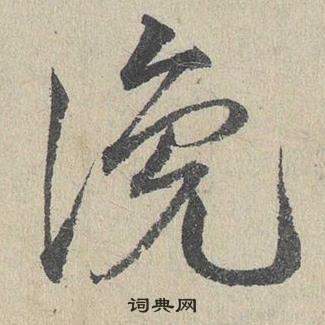 浼
词典网